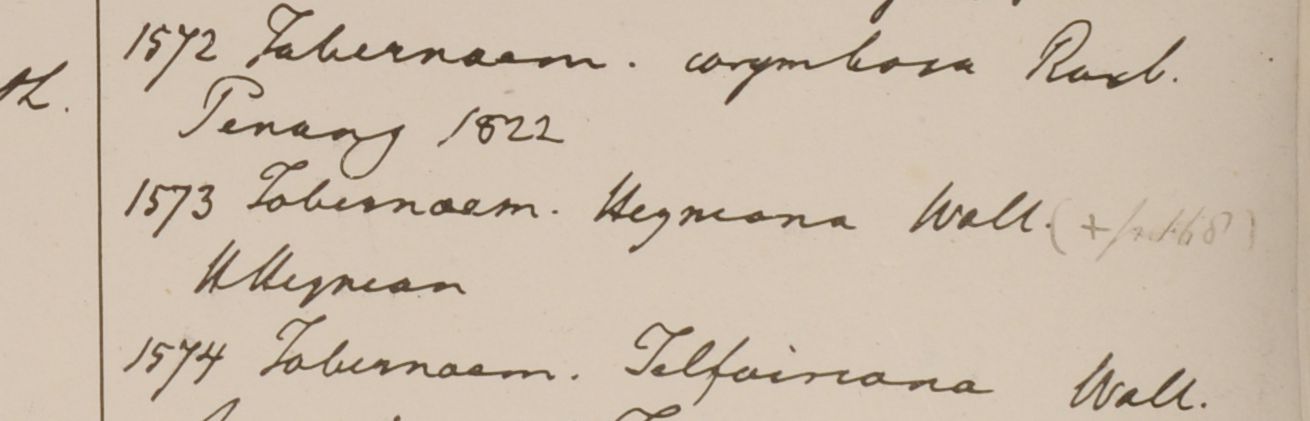 th.
1572 Tabernaem. corymbosa Roxb.
Penang 1822
1573 Tabernaem. Heyneana Wall.
H Heynean
1574 Tabernaem. Telfairiana Wall.